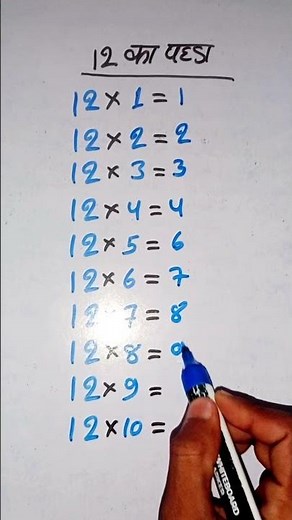 12 का पहाड़ा
12 × 1 = 1
12 × 2 = 2
12 × 3 = 3
12 × 4 = 4
12 × 5 = 6
12 × 6 = 7
12 × 7 = 8
12 × 8 = 9
12 × 9 =
12 × 10 =
WHITEBOARD